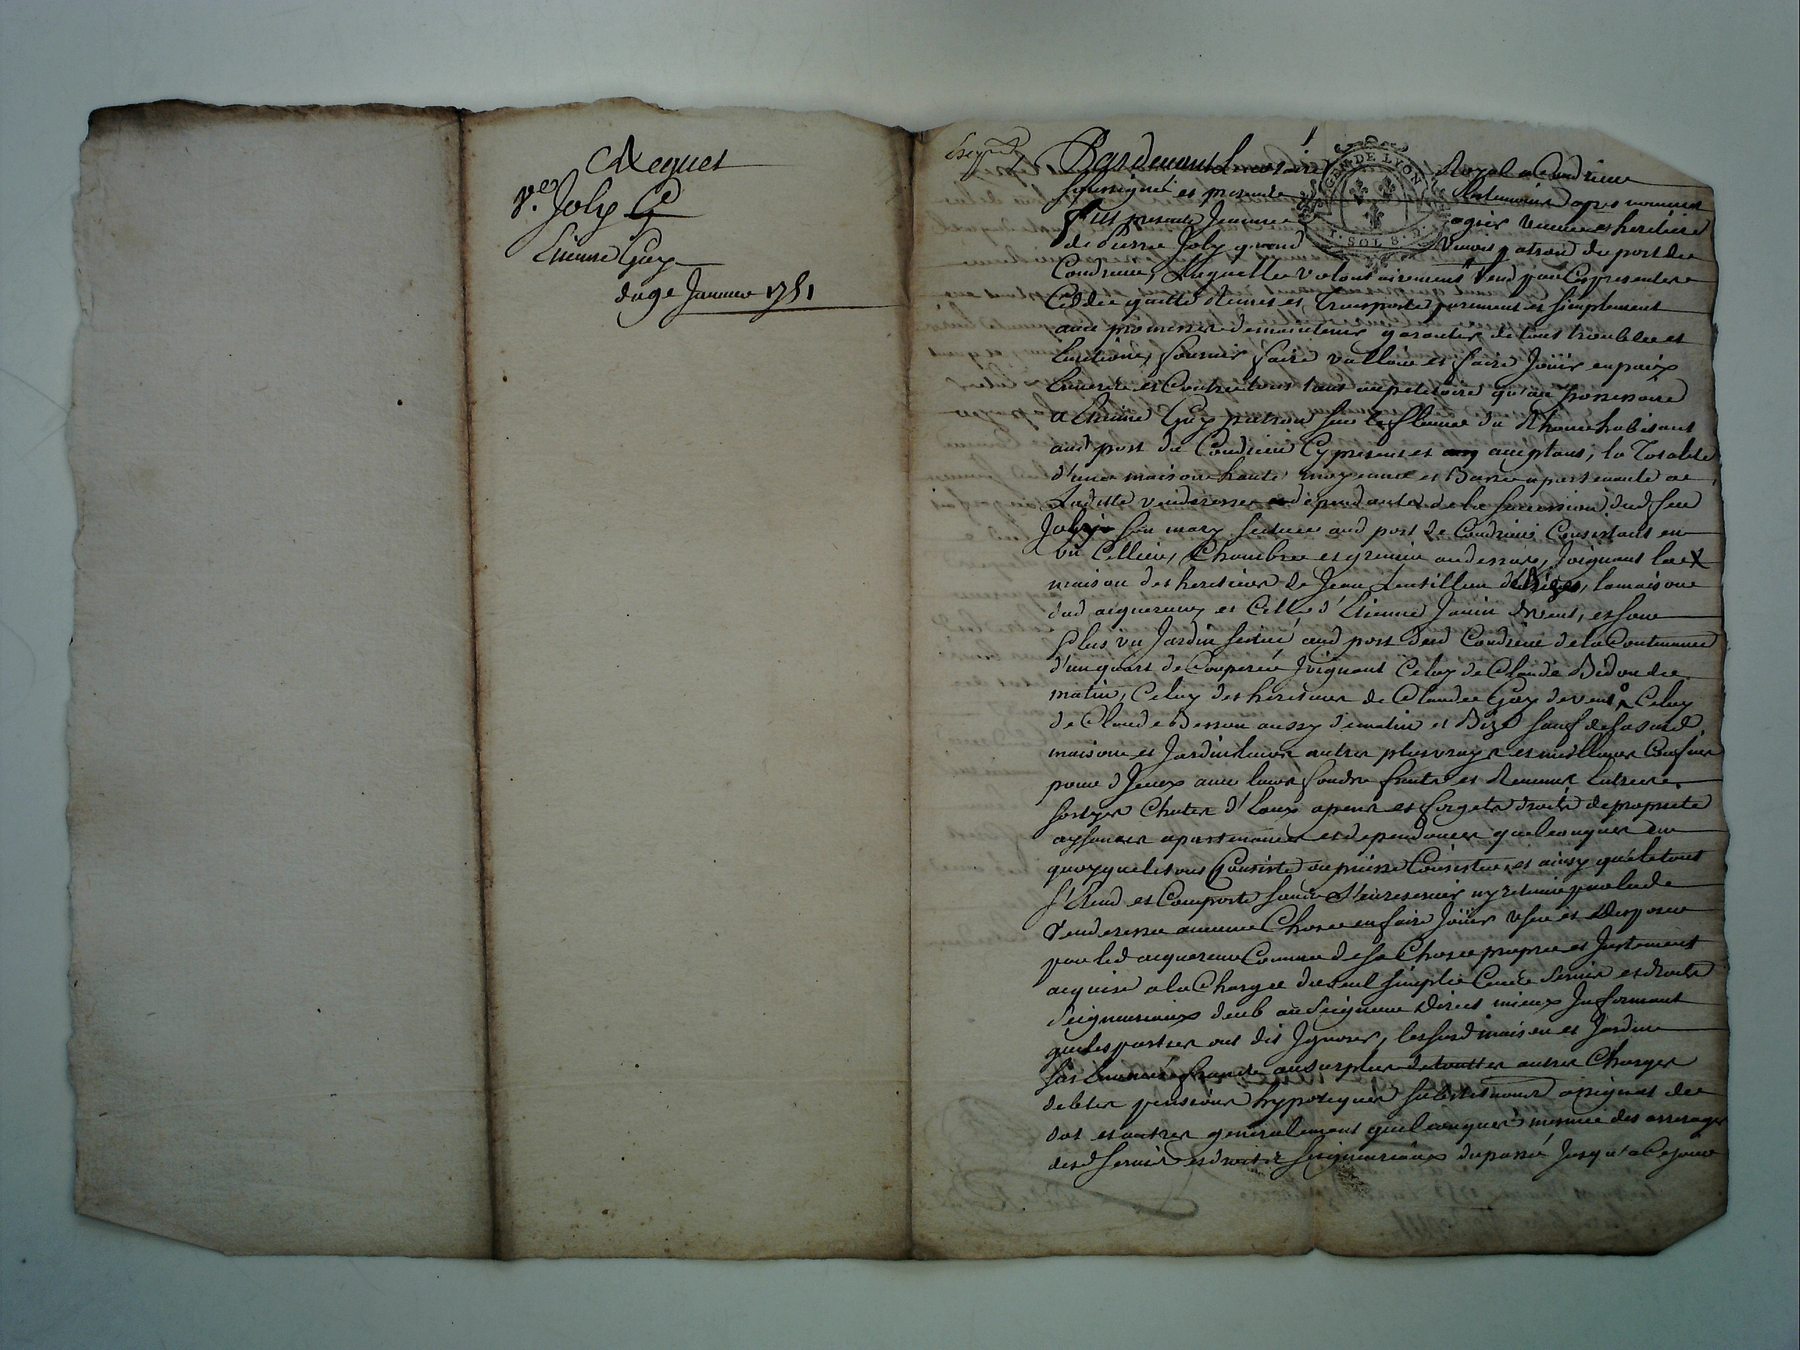 Acquet
Ve. Joly
Etienne Guy
du 9e Janvier 1751
GEN DE LYON
SOLS
1
Pardevant le notaire Royal a Condrieu
soussigné et presents temoins apres nommés
fut presente Jeanne ogier veuve et heritiere
de Pierre Joly quand vivoit patron du port de
Condrieu, Laquelle volontairement vend par Ces presentes
Cedde quitte Remet et Transporte purement et simplement
avec promesse de maintenir garantir de tous troubles et
Evictions, fournir faire valloir et faire Jouir en paix
Envers et Contre tous tant au petitoire qu'au possessoire
a Etienne Guy patron sur le fleuve du Rhone habitant
aud port de Condrieu Cy present et acceptant, la Totalité
d'une maison haute moyenne et Basse apartenante a
Laditte venderesse dependante de la succession dud feu
Joly son mary scituée aud port de Condrieu Consistant en
un Cellier, Chambre et grenier au dessus, Joignant la
maison des heritiers de Jean Lentillon de Bize, la maison
dud acquereur et Celle d'Etienne Janin de vent, et sans
Plus un Jardin scitué aud port dud Condrieu de la Contenance
d'un quart de Couperée Joignant Celuy de Claude Bidon de
matin, Celuy des heritiers de Claude Guy de vent, Celuy
de Claude Besson aussy de matin et Bize sauf de sasd
maison et Jardin leurs autres plus vrays et meilleurs Confins
pour d'Iceux avec leurs fonds fruits et Revenus Entrées
sortyes Chutes d'Eaux apens et forgets droits de proprieté
aysances apartenances et dependances quelconques en
quoy que le tout Consiste ou puisse Consister, et ainsy que le tout
s'Etend et Comporte sans s'en reserver ny retenir par lade
venderesse aucune Chose en faire Joüir User et Disposer
par led acquereur Comme de sa Chose propre et Justement
acquise a la Charge du seul simple Cens Servis et droits
Seigneuriaux deub au Seigneur Direct mieux Informant
que les parties ont dit Ignorer, les susd maison et Jardin
francs au surplus de touttes autres Charges
debtes pensions hypoteques substitutions assignat de
dot et autres generalement quelconques mesme des arrerages
desd servis et droits seigneuriaux du passé Jusqu'a Ce jour